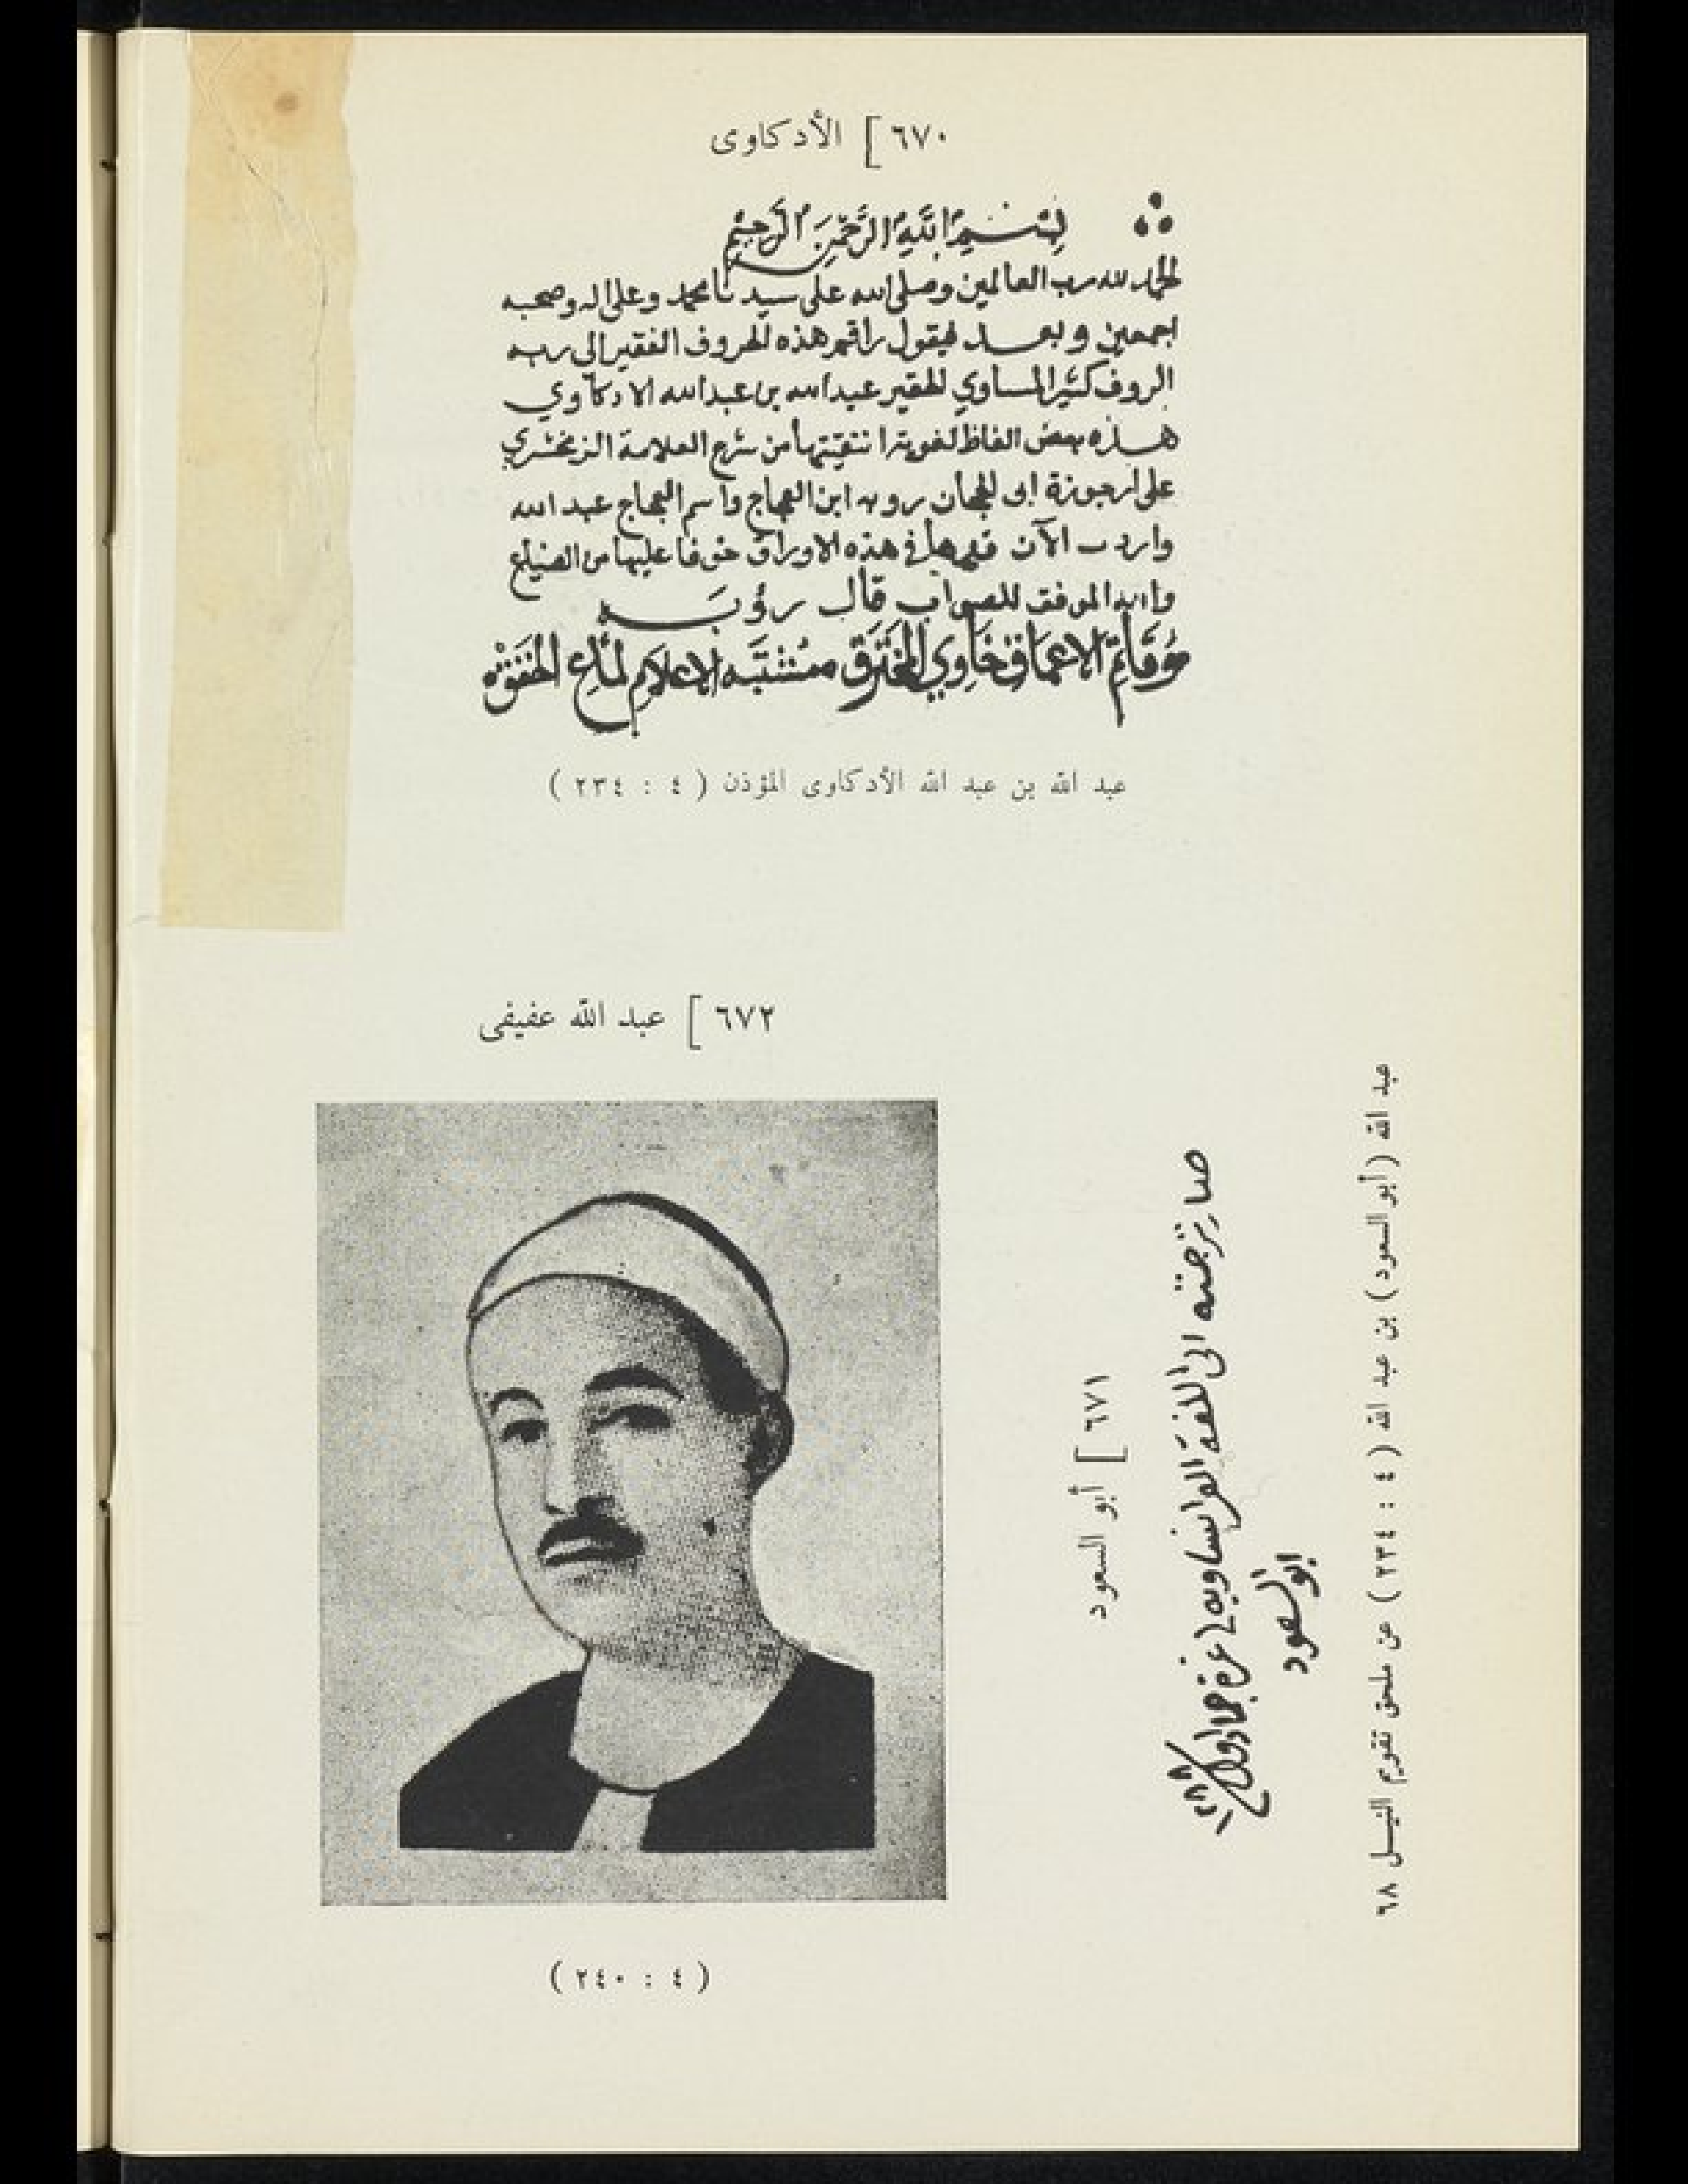 ٦٧٠ ] الأدكاوى
بِسْمِ اللهِ الرَّحْمٰنِ الرَّحِيْمِ
الحمد لله رب العالمين وصلى الله على سيدنا محمد وعلى اله وصحبه
اجمعين وبعد فيقول راقم هذه الحروف الفقير الى ربه
الروف كثير المساوي الحقير عبد الله بن عبد الله الادكاوي
هذه بعض الفاظ لغوية انتقيتها من شرح العلامة الزمخشري
على ارجوزة ابى الجحاف روبه ابن العجاج واسم العجاج عبد الله
واردت الآن قيدها في هذه الاوراق خوفا عليها من الضياع
والله الموفق للصواب قال رؤبَه
وَقَاتِمِ الاعماق خَاوِي المُخْتَرَقْ مشْتَبَه الاعلام لمّاع الخفقْ
عبد الله بن عبد الله الأدكاوى المؤذن ( ٤ : ٢٣٤ )
٦٧٢ ] عبد الله عفيفى
( ٤ : ٢٤٠ )
٦٧١ ] أبو السعود
صار ترجمته الى اللغة الفرانساويه في غرة جماد اول
ابو السعود
عبد الله ( أبو السعود ) بن عبد الله ( ٤ : ٢٣٤ ) عن ملحق تقويم النيل ٦٨